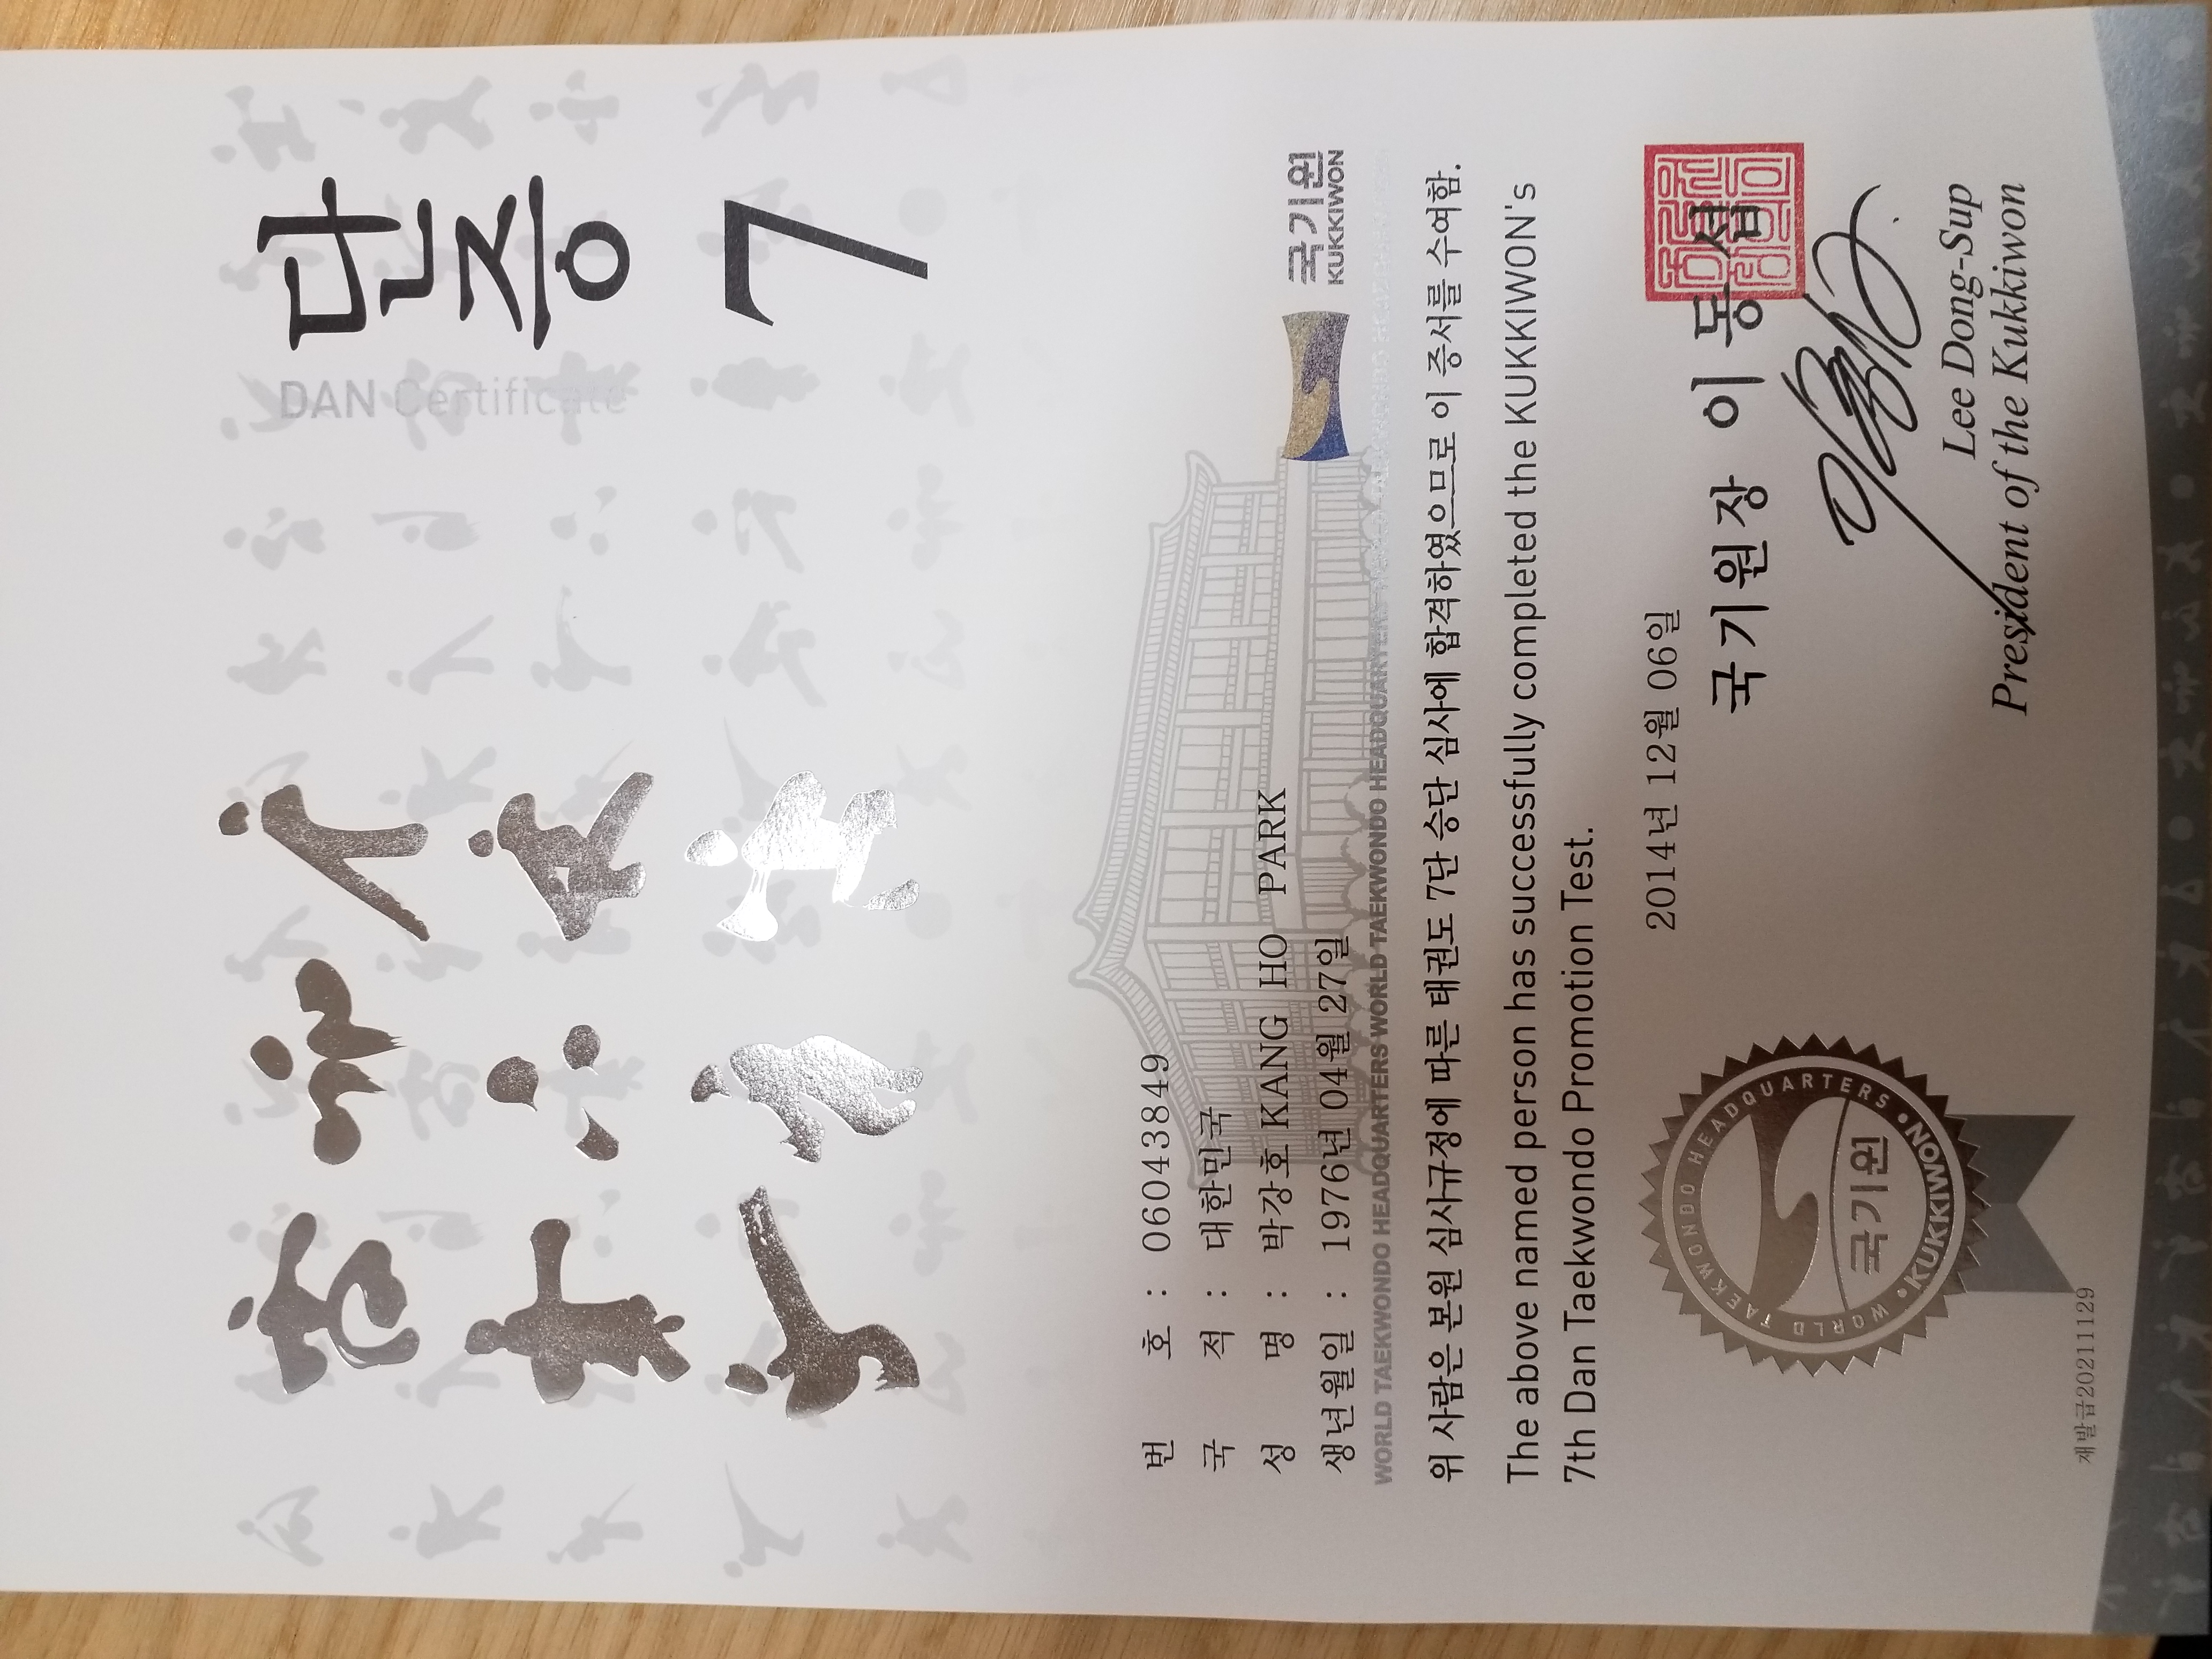 단증
DAN Certificate
7
국기원
KUKKIWON
번 호 : 06043849
국 적 : 대한민국
성 명 : 박강호 KANG HO PARK
생년월일 : 1976년 04월 27일
WORLD TAEKWONDO HEADQUARTERS WORLD TAEKWONDO HEADQUARTERS WORLD TAEKWONDO HEADQUARTERS
위 사람은 본원 심사규정에 따른 태권도 7단 승단 심사에 합격하였으므로 이 증서를 수여함.
The above named person has successfully completed the KUKKIWON's
7th Dan Taekwondo Promotion Test.
2014년 12월 06일
국기원장 이동섭
Lee Dong-Sup
President of the Kukkiwon
WORLD TAEKWONDO HEADQUARTERS
국기원
KUKKIWON
재발급20211129